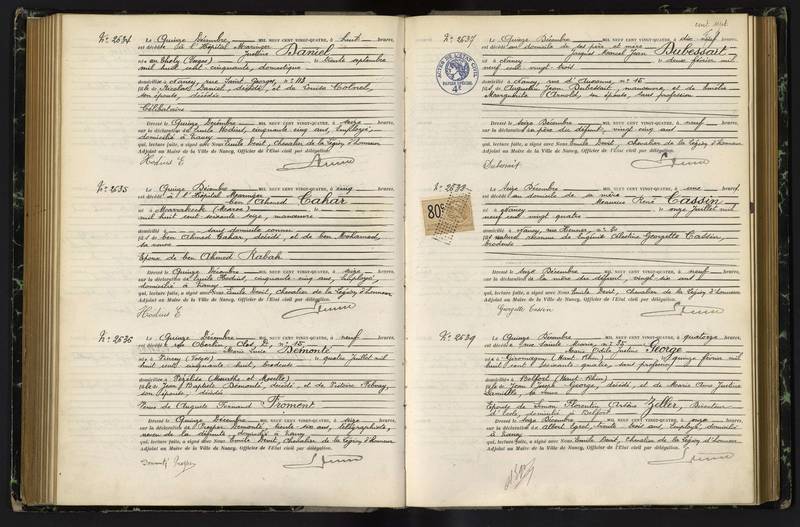 N° 2534
Le Quinze Décembre, MIL NEUF CENT VINGT-QUATRE, à huit heures,
est décédée à l'Hôpital Maringer
Justine Daniel
née au Tholy (Vosges) le trente septembre
mil huit cent cinquante, domestique
domiciliée à Nancy, rue Saint Georges, n° 113
fille de Nicolas Daniel, décédé, et de Louise Colnel,
son épouse, décédée
Célibataire
Dressé le Quinze Décembre MIL NEUF CENT VINGT-QUATRE, à seize heures,
sur la déclaration de Emile Hodius, cinquante cinq ans, Employé,
domicilié à Nancy
qui, lecture faite, a signé avec Nous Emile Devit, Chevalier de la Légion d'honneur
Adjoint au Maire de la Ville de Nancy, Officier de l'État civil par délégation.
Hodius E
N° 2535
Le Quinze Décembre MIL NEUF CENT VINGT-QUATRE, à cinq heures,
est décédé à l'Hôpital Maringer
ben Ahmed Cahar
né à Marrakech (Maroc)
mil huit cent soixante seize, manœuvre
domicilié à sans domicile connu
fils de ben Ahmed Cahar, décédé, et de ben Mohamed,
sa veuve
Epoux de ben Ahmed Rabah
Dressé le Quinze Décembre MIL NEUF CENT VINGT-QUATRE, à seize heures,
sur la déclaration de Emile Hodius, cinquante-cinq ans, Employé,
domicilié à Nancy
qui, lecture faite, a signé avec Nous Emile Devit, Chevalier de la Légion d'honneur
Adjoint au Maire de la Ville de Nancy, Officier de l'État civil par délégation.
Hodius E
N° 2536
Le Quinze Décembre, MIL NEUF CENT VINGT-QUATRE, à neuf heures,
est décédée n° 15,
Marie Lucie Demonté
née à Vincey (Vosges) le quatre Juillet mil
huit cent cinquante huit,
domiciliée à (Meurthe et Moselle)
fille de Jean Baptiste Demonté, décédé, et de Victoire
son épouse, décédée
Veuve de Auguste Fernand Froment
Dressé le Quinze Décembre MIL NEUF CENT VINGT-QUATRE, à seize heures,
sur la déclaration de Prosper Demonté, trente six ans, télégraphiste,
neveu de la défunte, domicilié à Nancy
qui, lecture faite, a signé avec Nous Emile Devit, Chevalier de la Légion d'honneur
Adjoint au Maire de la Ville de Nancy, Officier de l'État civil par délégation.
Demonté Prosper
N° 2537
Le Quinze Décembre, MIL NEUF CENT VINGT-QUATRE, à dix heures,
est décédé au domicile de ses père et mère
Jacques Marcel Jean Dubessait
né à Nancy le deux février mil
neuf cent vingt trois
domicilié à Nancy, rue n° 15
fils de Augustin Jean Dubessait, manœuvre, et de
Marguerite Arnold, son épouse, sans profession
Dressé le Seize Décembre MIL NEUF CENT VINGT-QUATRE, à neuf heures,
sur la déclaration de père du défunt, vingt cinq ans
qui, lecture faite, a signé avec Nous Emile Devit, Chevalier de la Légion d'honneur
Adjoint au Maire de la Ville de Nancy, Officier de l'État civil par délégation.
Dubessait
80c
Le Seize Décembre MIL NEUF CENT VINGT-QUATRE, à une heure,
est décédé au domicile de sa mère
Maurice René Cassin
né à Nancy le onze juillet mil
neuf cent vingt quatre
domicilié à Nancy, rue
fils naturel reconnu de Eugénie Célestine Georgette Cassin,
brodeuse
Dressé le Seize Décembre MIL NEUF CENT VINGT-QUATRE, à neuf heures,
sur la déclaration de la mère du défunt, vingt-six ans
qui, lecture faite, a signé avec Nous Emile Devit, Chevalier de la Légion d'honneur
Adjoint au Maire de la Ville de Nancy, Officier de l'État civil par délégation.
Georgette Cassin
N° 2539
Le Quinze Décembre MIL NEUF CENT VINGT-QUATRE, à quatorze heures,
est décédée rue Sainte Marie, n° 35
Marie Odile Justine George
née à Giromagny (Haut Rhin) le quinze février mil
huit cent soixante quatre, sans profession
domiciliée à Belfort (Haut Rhin)
fille de Jean Joseph George, décédé, et de Marie Anne Justine
Epouse de Simon Florentin Zeller, Directeur
d'Ecole, domicilié à Belfort
Dressé le Seize Décembre MIL NEUF CENT VINGT-QUATRE, à onze heures,
sur la déclaration de Albert trente trois ans, Employé, domicilié
à Nancy
qui, lecture faite, a signé avec Nous Emile Devit, Chevalier de la Légion d'honneur
Adjoint au Maire de la Ville de Nancy, Officier de l'État civil par délégation.